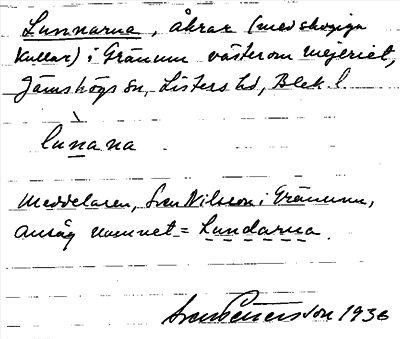 Lunnarna, åkrar (med skogiga
kullar) i Gränum västerom mejeriet,
Jämshögs sn, Listers hd, Blek. l.
lùnana
Meddelaren, Sven Nilsson i Gränum,
ansåg namnet = Lundarna.
Sven Petersson 1936